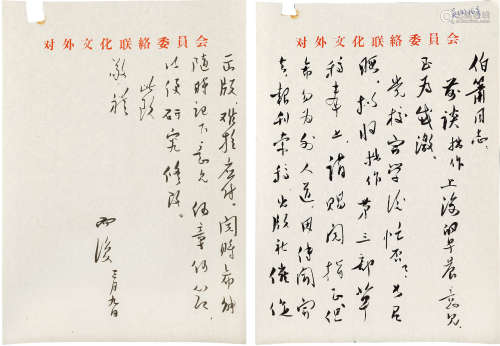 对外文化联络委员会
伯箫同志：
前谈拙作上海的早晨意见
至为感激。
党校官学後忙否？
联 拟将拙作第三部草
稿奉上，请赐阅指正但
希勿为外人道，因传闻
去报刊索稿，出版社催促
对外文化联络委员会
函版，难于应付。阅时希能
随时记下意见
以便研究修改。
此致
敬礼
而復
三月九日